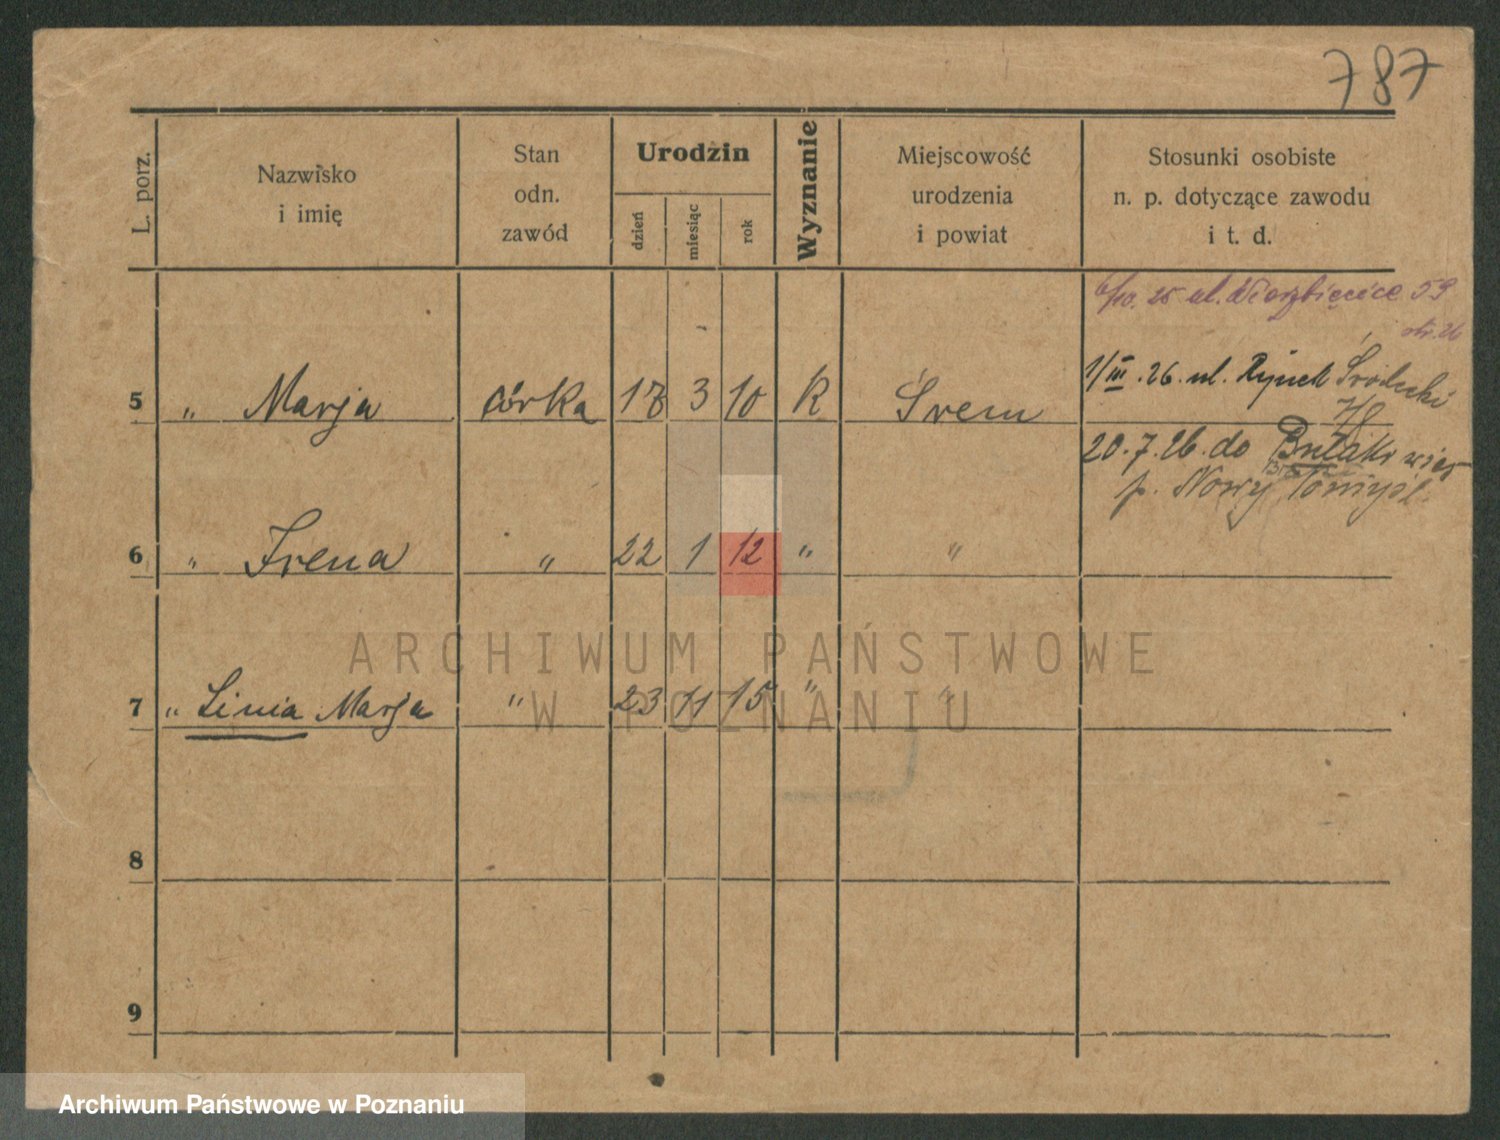 787
L. porz.
Nazwisko
i imię
Stan
odn.
zawód
Urodzin
dzień
miesiąc
rok
Wyznanie
Miejscowość
urodzenia
i powiat
Stosunki osobiste
n. p. dotyczące zawodu
i t. d.
6/10. 25 ul. 59
str. 26
1/III. 26. ul. Rynek Śródecki
5 " Marja córka 3 10 R Śrem
20. 7. 26. do
p. Nowy Tomyśl.
6 " Irena " 22 1 12 " "
ARCHIWUM PAŃSTWOWE
W POZNANIU
7 " Marja " 23 11 15 " "
8
9
Archiwum Państwowe w Poznaniu